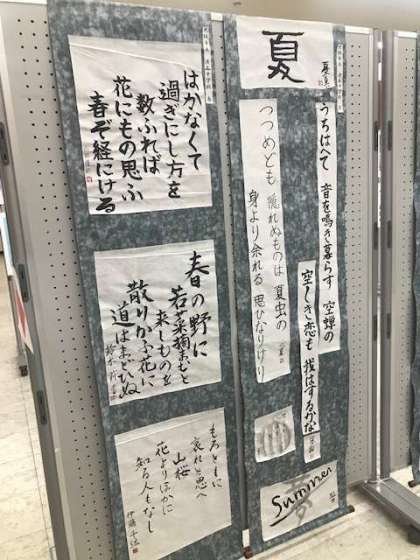 はかなくて
過ぎにし方を
数ふれば
花にもの思ふ
春ぞ経にける
春の野に
若菜摘まむと
来しものを
散りかふ花に
道はまどひぬ
もろともに
哀れと思へ
山桜
花よりほかに
知る人もなし
夏
うちはへて 音を鳴き暮らす 空蝉の
空しき恋も 我はするかな
つつめども 隠れぬものは 夏虫の
身より余れる 思ひなりけり
Summer